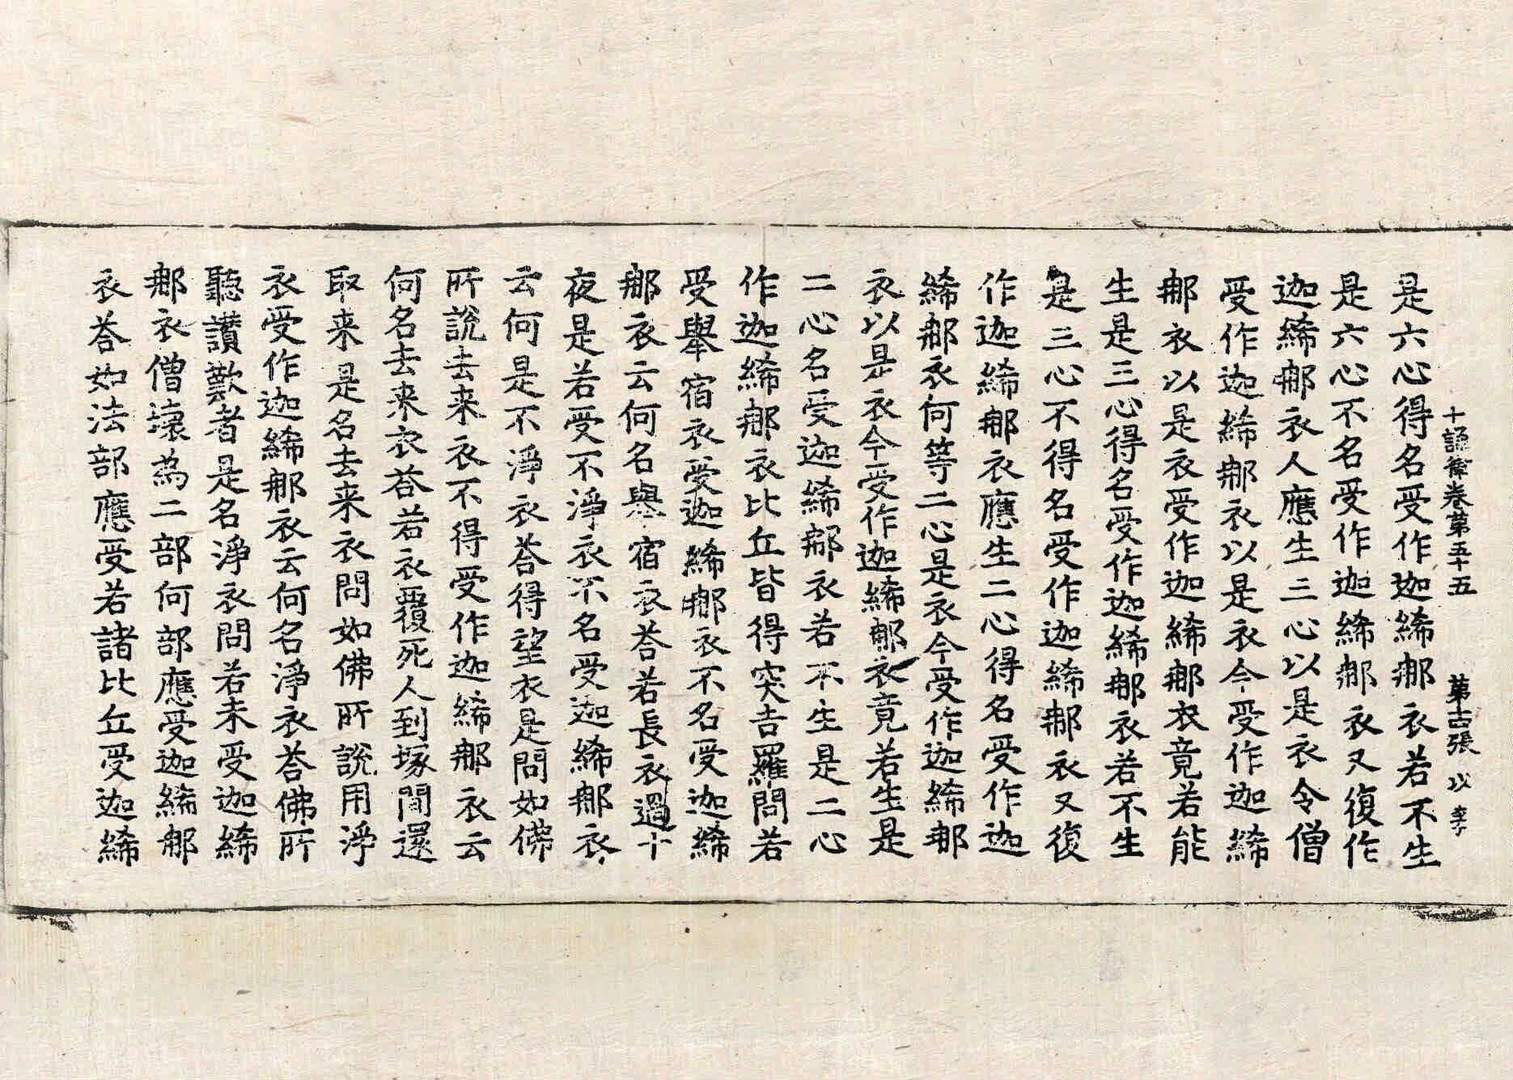 十誦律卷第五十五 第十四張 以 李
是六心得名受作迦絺那衣若不生
是六心不名受作迦絺那衣又復作
迦絺那衣人應生三心以是衣令僧
受作迦絺那衣以是衣今受作迦絺
那衣以是衣受作迦絺那衣竟若能
生是三心得名受作迦絺那衣若不生
是三心不得名受作迦絺那衣又復
作迦絺那衣應生二心得名受作迦
絺那衣何等二心是衣今受作迦絺那
衣以是衣今受作迦絺那衣竟若生是
二心名受迦絺那衣若不生是二心
作迦絺那衣比丘皆得突吉羅問若
受舉宿衣受迦絺那衣不名受迦絺
那衣云何名舉宿衣荅若長衣過十
夜是若受不淨衣不名受迦絺那衣
云何是不淨衣荅得望衣是問如佛
所說去来衣不得受作迦絺那衣云
何名去来衣荅若衣覆死人到塚間還
取来是名去来衣問如佛所說用淨
衣受作迦絺那衣云何名淨衣荅佛所
聽讃歎者是名淨衣問若未受迦絺
那衣僧壞為二部何部應受迦絺那
衣荅如法部應受若諸比丘受迦絺